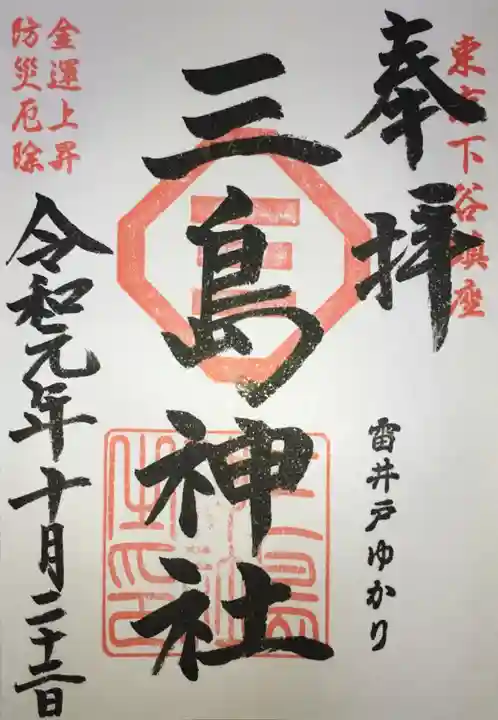 東京下谷鎮座
奉拝
雷井戸ゆかり
三島神社
金運上昇
防災厄除
令和元年十月二十三日